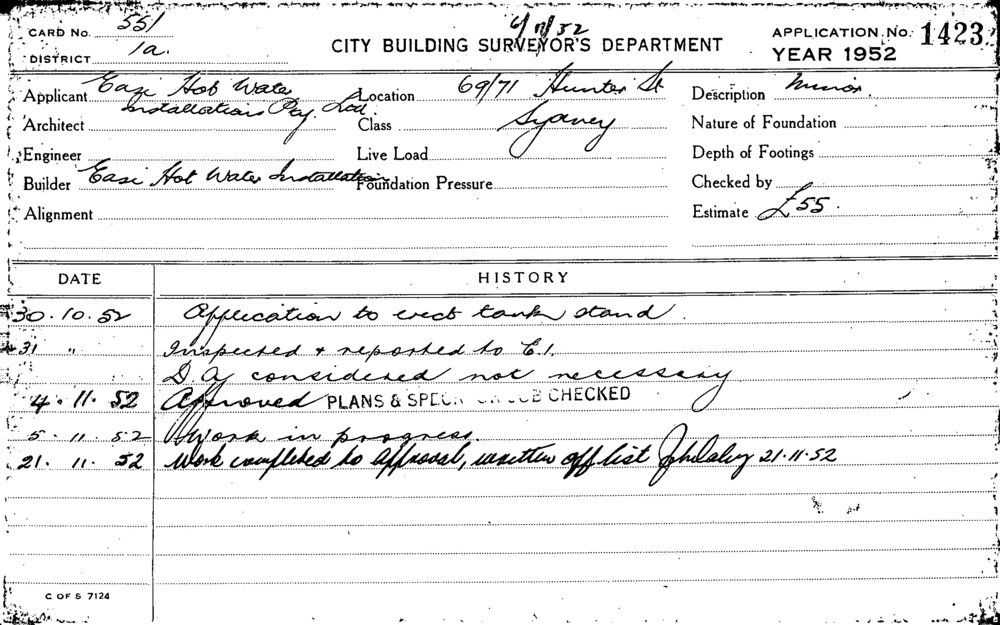 CARD No. 551
6/11/52
CITY BUILDING SURVEYOR'S DEPARTMENT
APPLICATION No. 1423
DISTRICT 1a.
YEAR 1952
Applicant Easi Hot Water Installations Pty. Ltd.
Location 69/71 Hunter St Sydney
Description Minor.
Architect
Class
Nature of Foundation
Engineer
Live Load
Depth of Footings
Builder Easi Hot Water Installation
Foundation Pressure
Checked by
Alignment
Estimate £55.
DATE HISTORY
30.10.52 Application to erect tank stand.
31 " Inspected & reported to C.I.
D A considered not necessary
4.11.52 Approved PLANS & SPECN JOB CHECKED
5.11.52 Work in progress.
21.11.52 Work completed to approval, written off list 21.11.52
C OF S 7124